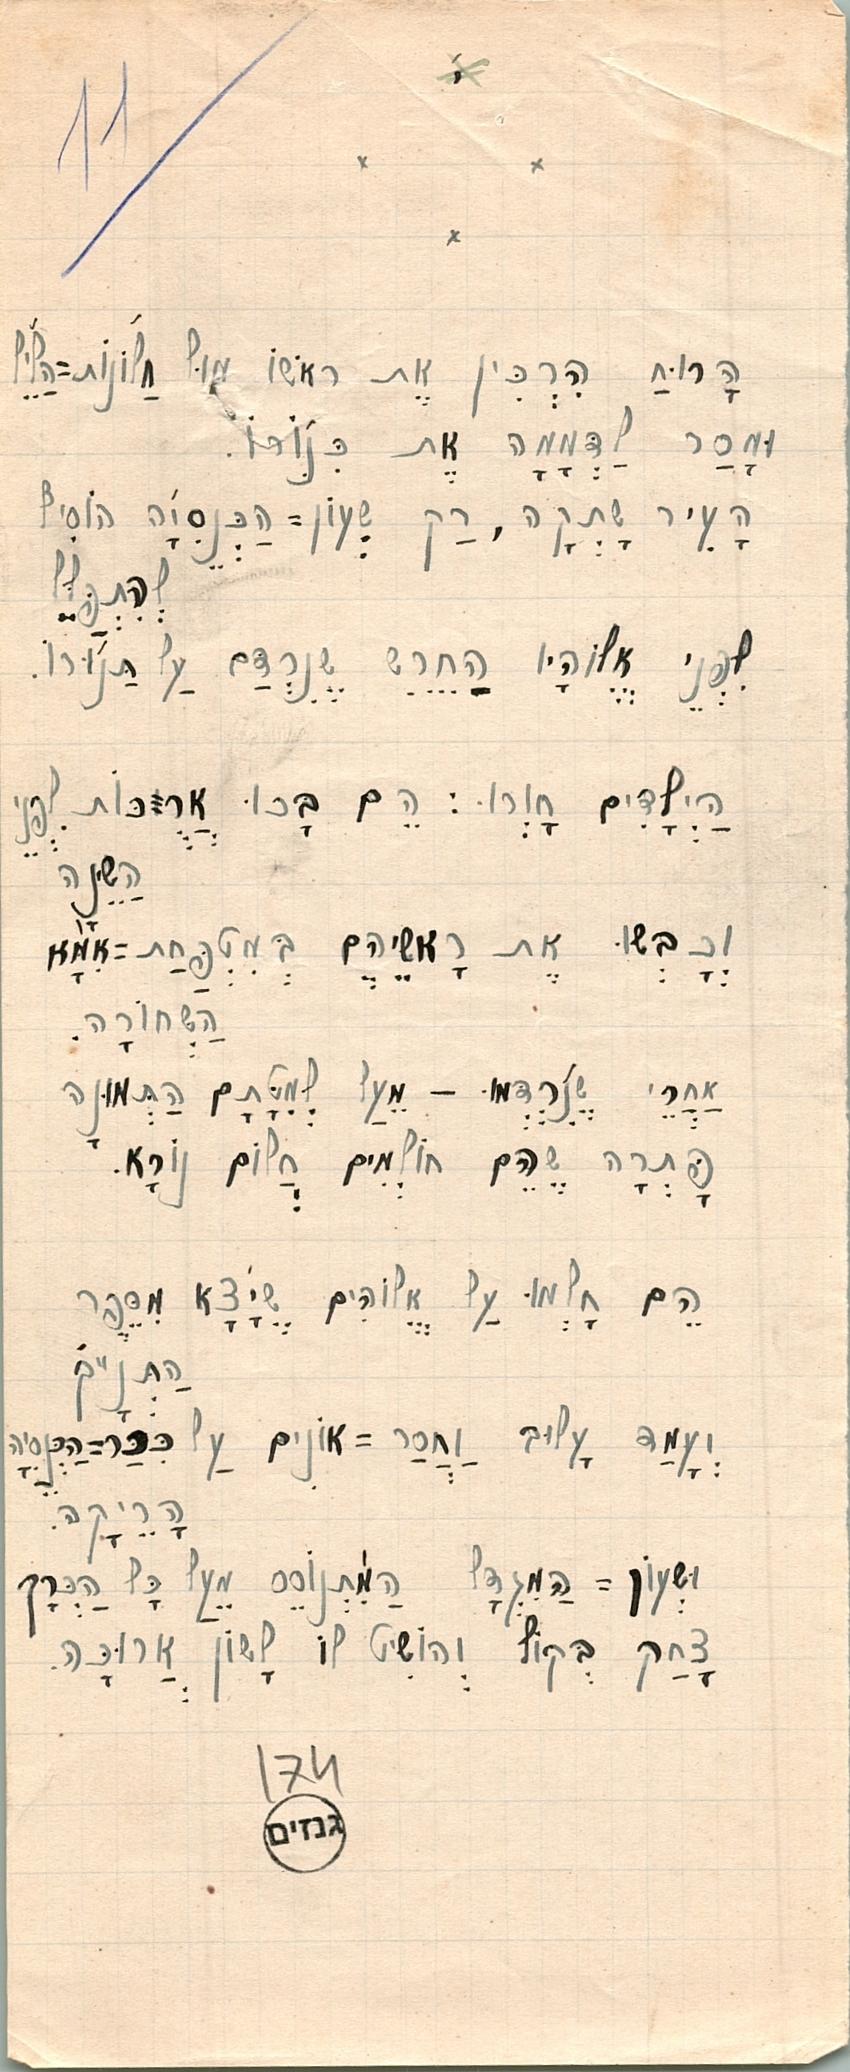 11
הָרוּחַ הִרְכִּין אֶת רֹאשׁוֹ מוּל חַלּוֹנוֹת=הַלֵּיל
וּמָסַר לַדְּמָמָה אֶת כִּנּוֹרוֹ.
הָעִיר שָׁתְקָה, רַק שְׁעוֹן=הַכְּנֵסִיָּה הוֹסִיף
לְהִתְפַּלֵּל
לִפְנֵי אֱלוֹהָיו הַחֵרֵשׁ שֶׁנִּרְדַּם עַל תַּנּוּרוֹ.
הַיְלָדִים חָוְרוּ: הֵם בָּכוּ אֲרֻכּוֹת לִפְנֵי
הַשֵּׁנָה
וְכָבְשׁוּ אֶת רָאשֵׁיהֶם בְּמִטְפַּחַת=אִמָּא
הַשְּׁחוֹרָה.
אַחֲרֵי שֶׁנִּרְדְּמוּ – מֵעַל לְמִטָּתָם הַתְּמוּנָה
פָּתְרָה שֶׁהֵם חוֹלְמִים חֲלוֹם נוֹרָא.
הֵם חָלְמוּ עַל אֱלוֹהִים שֶׁיָּצָא מִסֵּפֶר
הַתְּנָ״ךְ
וְעָמַד עָלוּב וַחֲסַר=אוֹנִים עַל כִּכַּר=הַכְּנֵסִיָּה
הָרֵיקָה.
וּשְׁעוֹן=הַמִּגְדָּל הַמִּתְנוֹסֵס מֵעַל כָּל הַכְּרָךְ
צָחַק בְּקוֹל וְהוֹשִׁיט לוֹ לָשׁוֹן אֲרוּכָּה.
174
גנזים